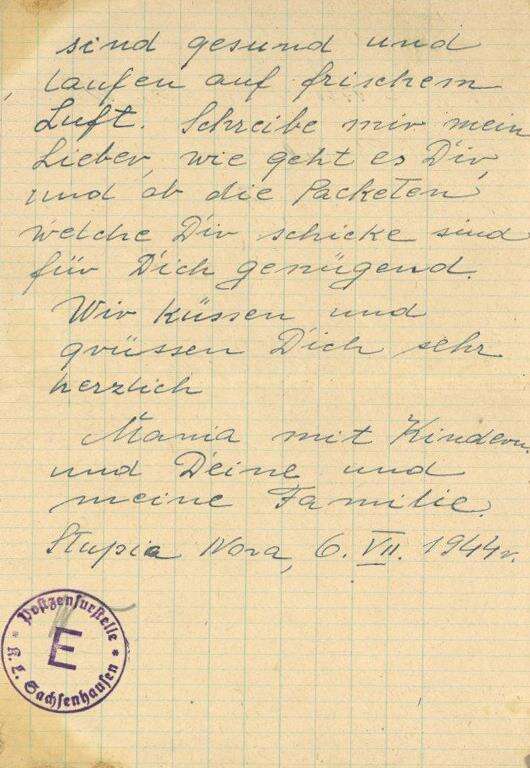 sind gesund und
laufen auf frischem
Luft. Schreibe mir mein
Lieber, wie geht es Dir,
und ob die Packeten,
welche Dir schicke sind
für Dich genügend.
Wir küssen und
grüssen Dich sehr
herzlich
Mania mit Kindern
und Deine und
meine Familie.
Słupia Nova, 6. VII. 1944r.
Postzensurstelle
E
K. L. Sachsenhausen